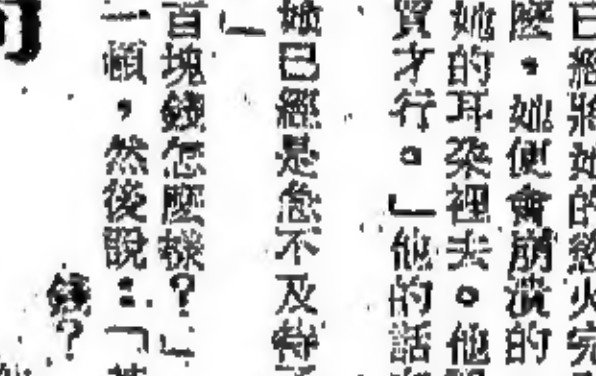 已經將她的慾火完
麼，她便會崩潰的
她的耳朶裡去。他
買才行。」他的話
她已經是急不及待
」
百塊錢怎麼樣？」
一頓，然後說：「
錢？